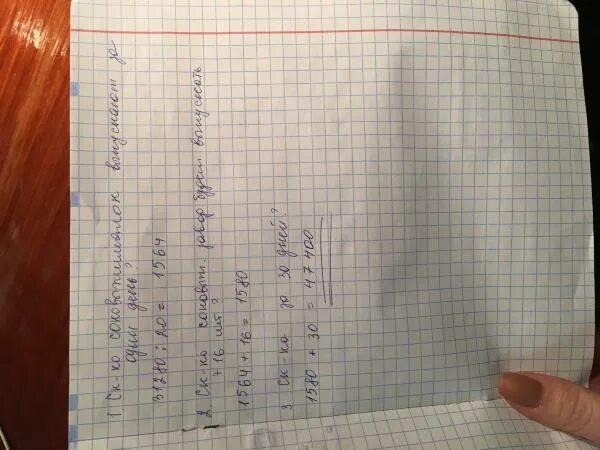 1. Ск-ко соковыжималок выпускают за
один день?
31280 : 20 = 1564
2. Ск-ко соковыж. завод будет выпускать
+ 16 шт?
1564 + 16 = 1580
3. Ск-ко за 30 дней?
1580 * 30 = 47400